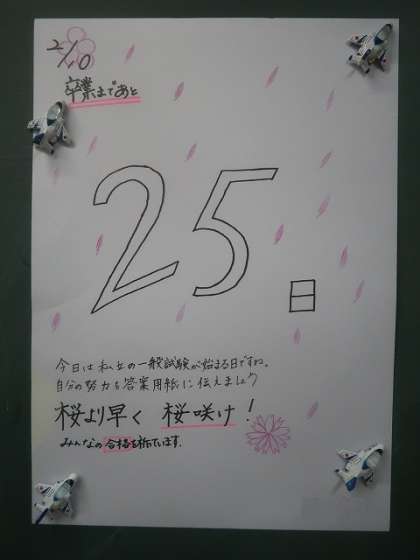 2/10
卒業まであと
25日
今日は私立の一般試験が始まる日ですね。
自分の努力を答案用紙に伝えましょう
桜より早く 桜咲け!
みんなの合格を祈ています。